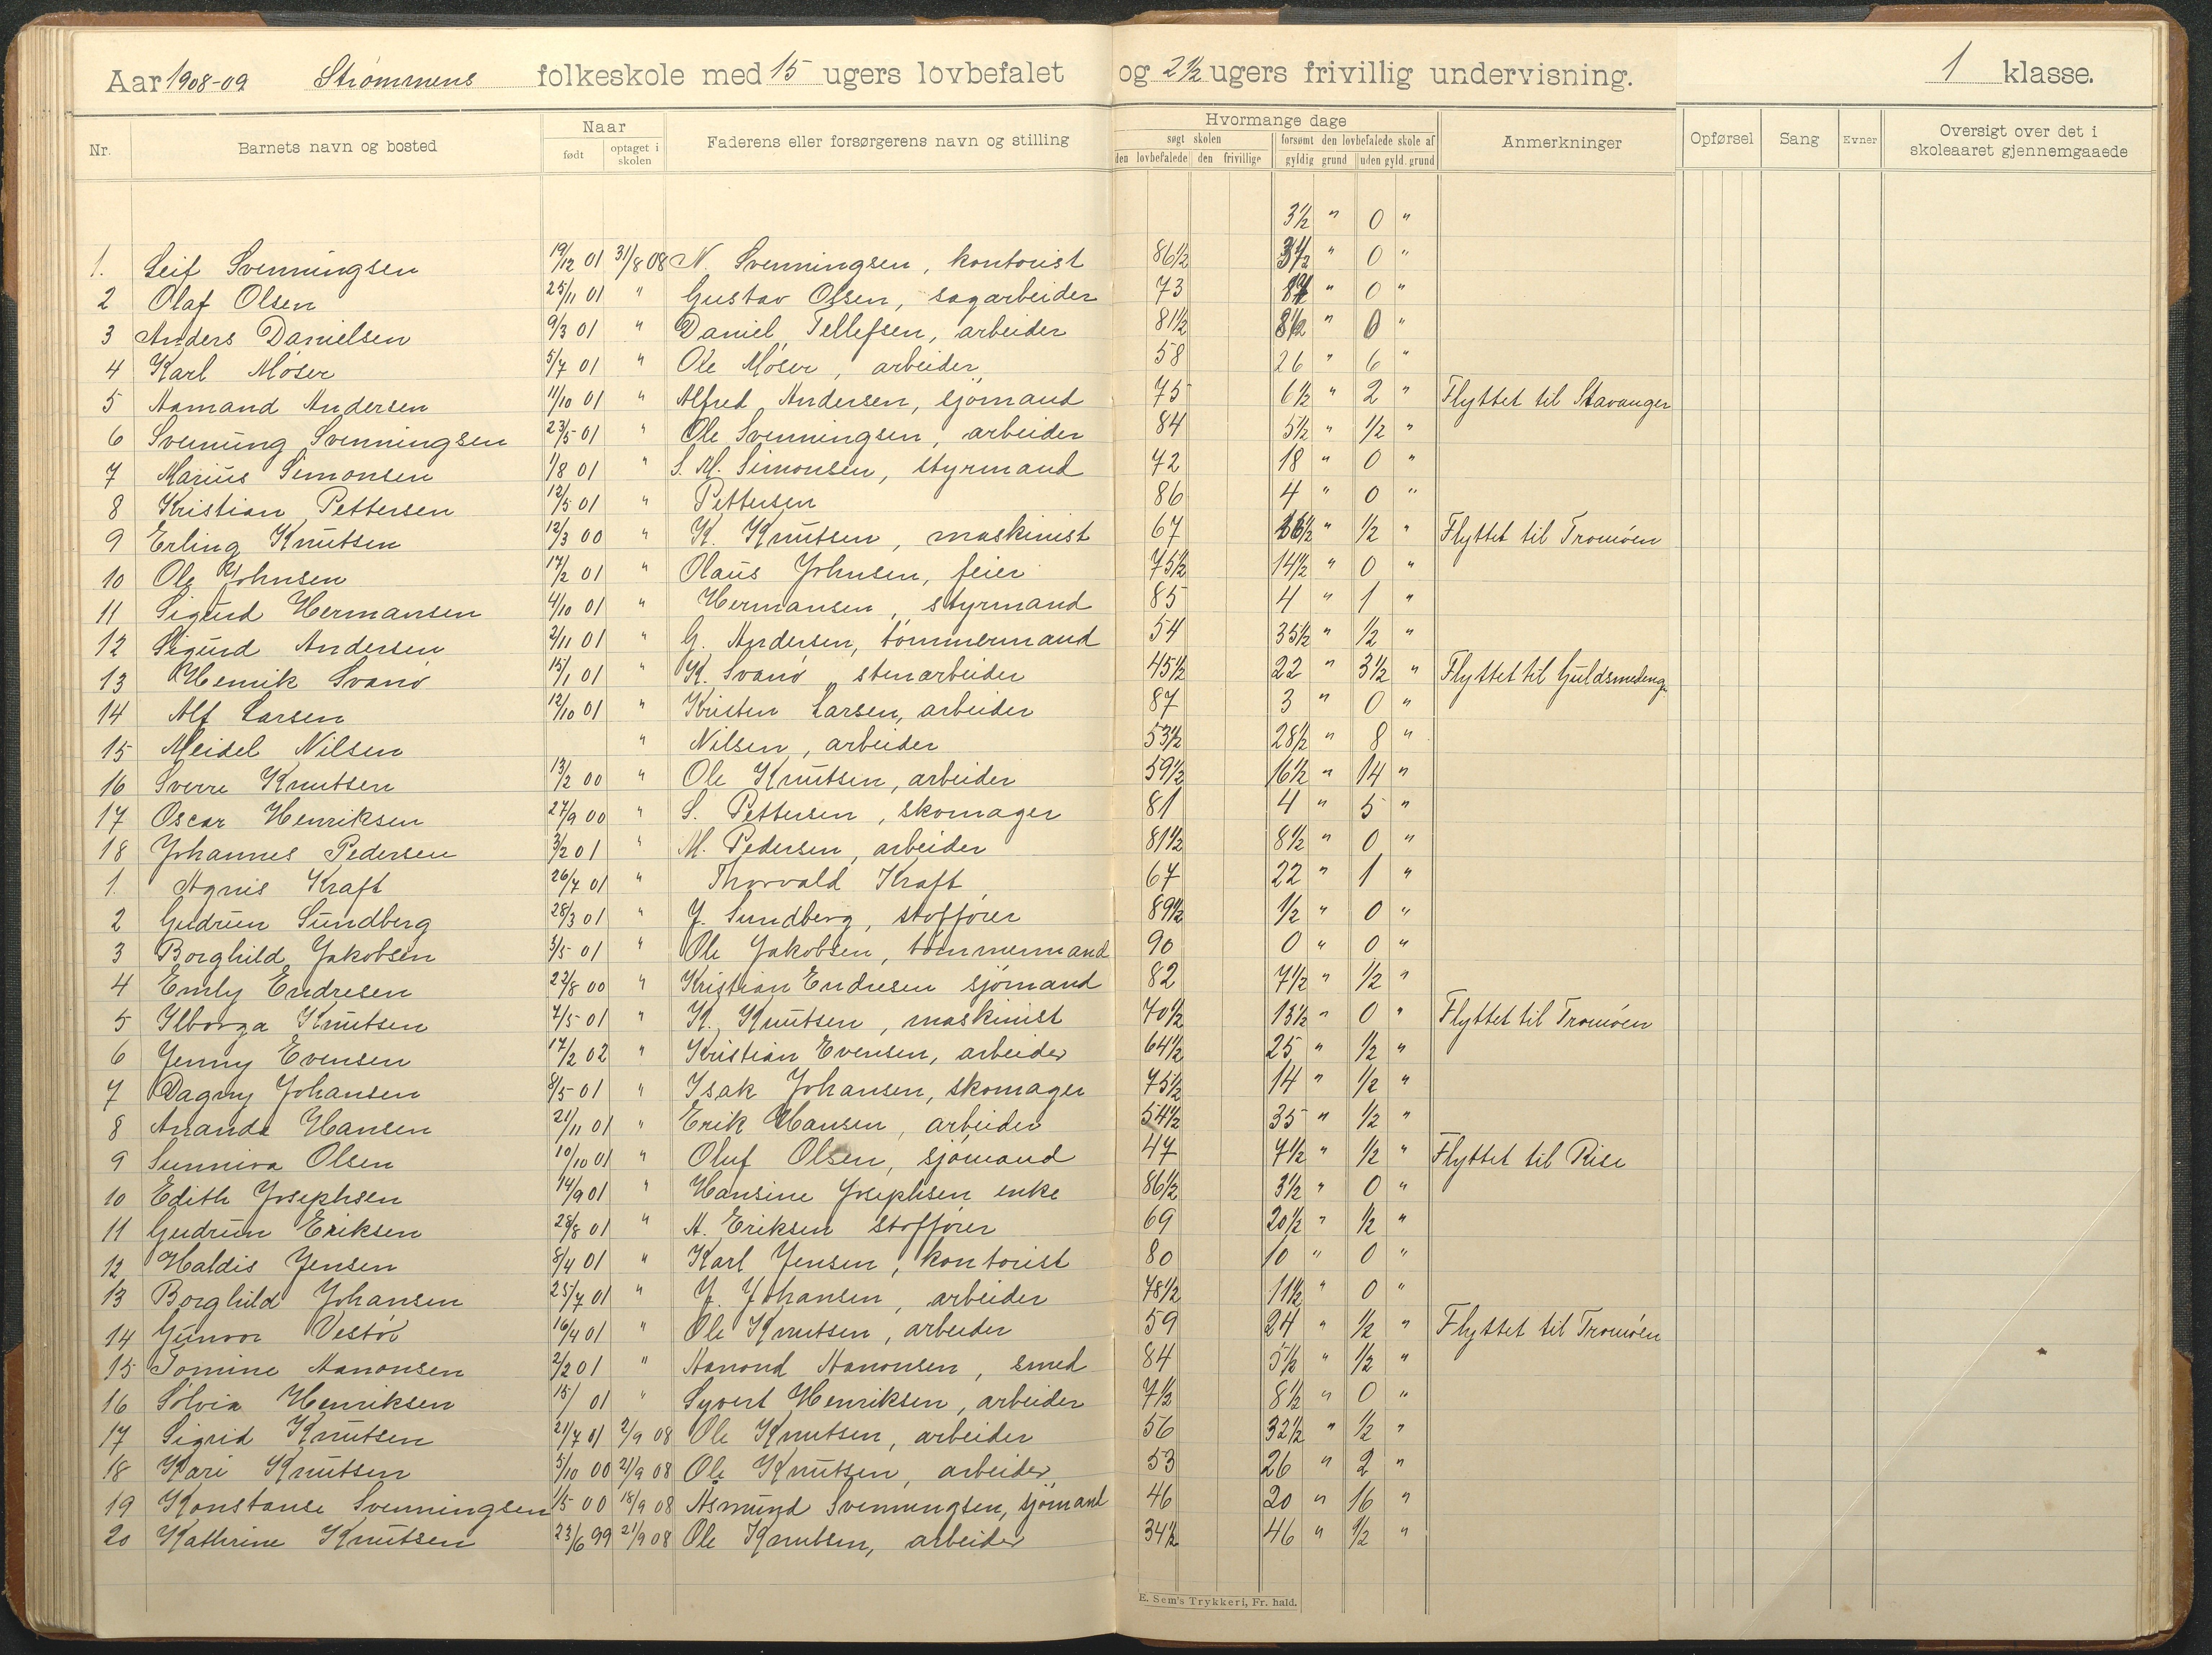 Aar 1908-09 Strømmens folkeskole med 15 ugers lovbefalet og 2½ ugers frivillig undervisning. 1 klasse.
Nr. Barnets navn og bosted Naar født optaget i skolen Faderens eller forsørgerens navn og stilling Hvormange dage søgt skolen den lovbefalede den frivillige forsømt den lovbefalede skole af gyldig grund uden gyld. grund Anmerkninger Opførsel Sang Evner Oversigt over det i skoleaaret gjennemgaaede
3½ " 0 "
1. Leif Svenningsen 19/12 01 31/8 08 N. Svenningsen, kontorist 86½ 3½ " 0 "
2 Olaf Olsen 25/11 01 " Gustav Olsen, sagarbeider 73 " 0 "
3 Anders Danielsen 9/3 01 " Daniel Tellefsen, arbeider 81½ 8½ " 0 "
4 Karl Møser 5/7 01 " Ole Møser, arbeider 58 26 " 6 "
5 Aamand Andersen 11/10 01 " Alfred Andersen, sjømand 75 6½ " 2 " Flyttet til Stavanger
6 Svenung Svenningsen 23/5 01 " Ole Svenningsen, arbeider 84 5½ " ½ "
7 Marius Simonsen 1/8 01 " S. M. Simonsen, styrmand 72 18 " 0 "
8 Kristian Pettersen 12/5 01 " Pettersen 86 4 " 0 "
9 Erling Knutsen 12/3 00 " K. Knutsen, maskinist 67 " ½ " Flyttet til Tromøen
10 Ole Johnsen 17/2 01 " Olaus Johnsen, feier 75½ 14½ " 0 "
11 Sigurd Hermansen 4/10 01 " Hermansen, styrmand 85 4 " 1 "
12 Sigurd Andersen 2/11 01 " G. Andersen, tømmermand 54 35½ " ½ "
13 Henrik Svanø 15/1 01 " K. Svanø, stenarbeider 45½ 22 " 3½ " Flyttet til Guldsmedeng.
14 Alf Larsen 12/10 01 " Kristen Larsen, arbeider 87 3 " 0 "
15 Meidel Nilsen " Nilsen, arbeider 53½ 28½ " 8 "
16 Sverre Knutsen 13/2 00 " Ole Knutsen, arbeider 59½ 16½ " 14 "
17 Oscar Henriksen 27/9 00 " S. Pettersen, skomager 81 4 " 5 "
18 Johannes Pedersen 3/2 01 " M. Pedersen, arbeider 81½ 8½ " 0 "
1. Agnis Kraft 26/7 01 " Thorvald Kraft, 67 22 " 1 "
2 Gudrun Sundberg 28/3 01 " J. Sundberg, stoffører 89½ ½ " 0 "
3 Borghild Jakobsen 3/5 01 " Ole Jakobsen, tømmermand 90 0 " 0 "
4 Emly Endresen 22/8 00 " Kristian Endresen sjømand 82 7½ " ½ "
5 Ilborga Knutsen 7/5 01 " K. Knutsen, maskinist 70½ 13½ " 0 " Flyttet til Tromøen
6 Jenny Evensen 17/2 02 " Kristian Evensen, arbeider 64½ 25 " ½ "
7 Dagny Johansen 8/5 01 " Isak Johansen, skomager 75½ 14 " ½ "
8 Ananda Hansen 21/11 01 " Erik Hansen, arbeider 54½ 35 " ½ "
9 Sunniva Olsen 10/10 01 " Oluf Olsen, sjømand 47 7½ " ½ " Flyttet til Rise
10 Edith Josephsen 14/9 01 " Hansine Josephsen enke 86½ 3½ " 0 "
11 Gudrun Eriksen 28/8 01 " A. Eriksen stoffører 69 20½ " ½ "
12 Haldis Jensen 8/4 01 " Karl Jensen, kontorist 80 10 " 0 "
13 Borghild Johansen 25/7 01 " J. Johansen, arbeider 78½ 11½ " 0 "
14 Gunvor Vestøl 16/4 01 " Ole Knutsen, arbeider 59 24 " ½ " Flyttet til Tromøen
15 Tomine Aanonsen 2/2 01 " Aanond Aanonsen, smed 84 5½ " ½ "
16 Solvia Henriksen 15/ 01 " Syvert Henriksen, arbeider 7½ 8½ " 0 "
17 Sigrid Knutsen 21/7 01 2/9 08 Ole Knutsen, arbeider 56 32½ " ½ "
18 Kari Knutsen 5/10 00 2/9 08 Ole Knutsen, arbeider 53 26 " 2 "
19 Konstanse Svenningsen 1/5 00 18/9 08 Asmund Svenningsen, sjømand 46 20 " 16 "
20 Kathrine Knutsen 23/6 99 21/9 08 Ole Knutsen, arbeider 34½ 46 " ½ "
E. Sem's Trykkeri, Fr. hald.